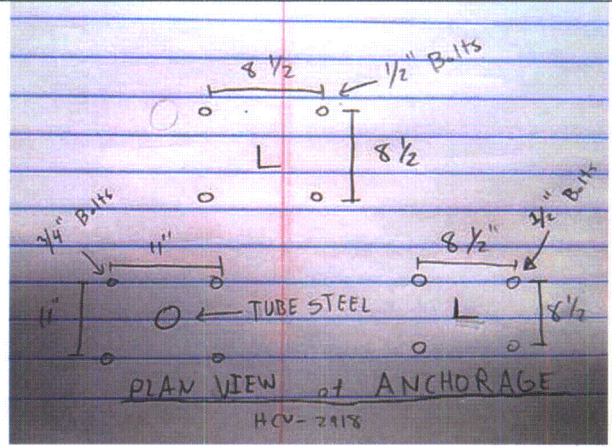 8 1/2
1/2" Bolts
L
8 1/2
3/4" Bolts
11"
11"
TUBE STEEL
8 1/2"
1/2" Bolts
L
8 1/2
PLAN VIEW of ANCHORAGE
HCV-2918